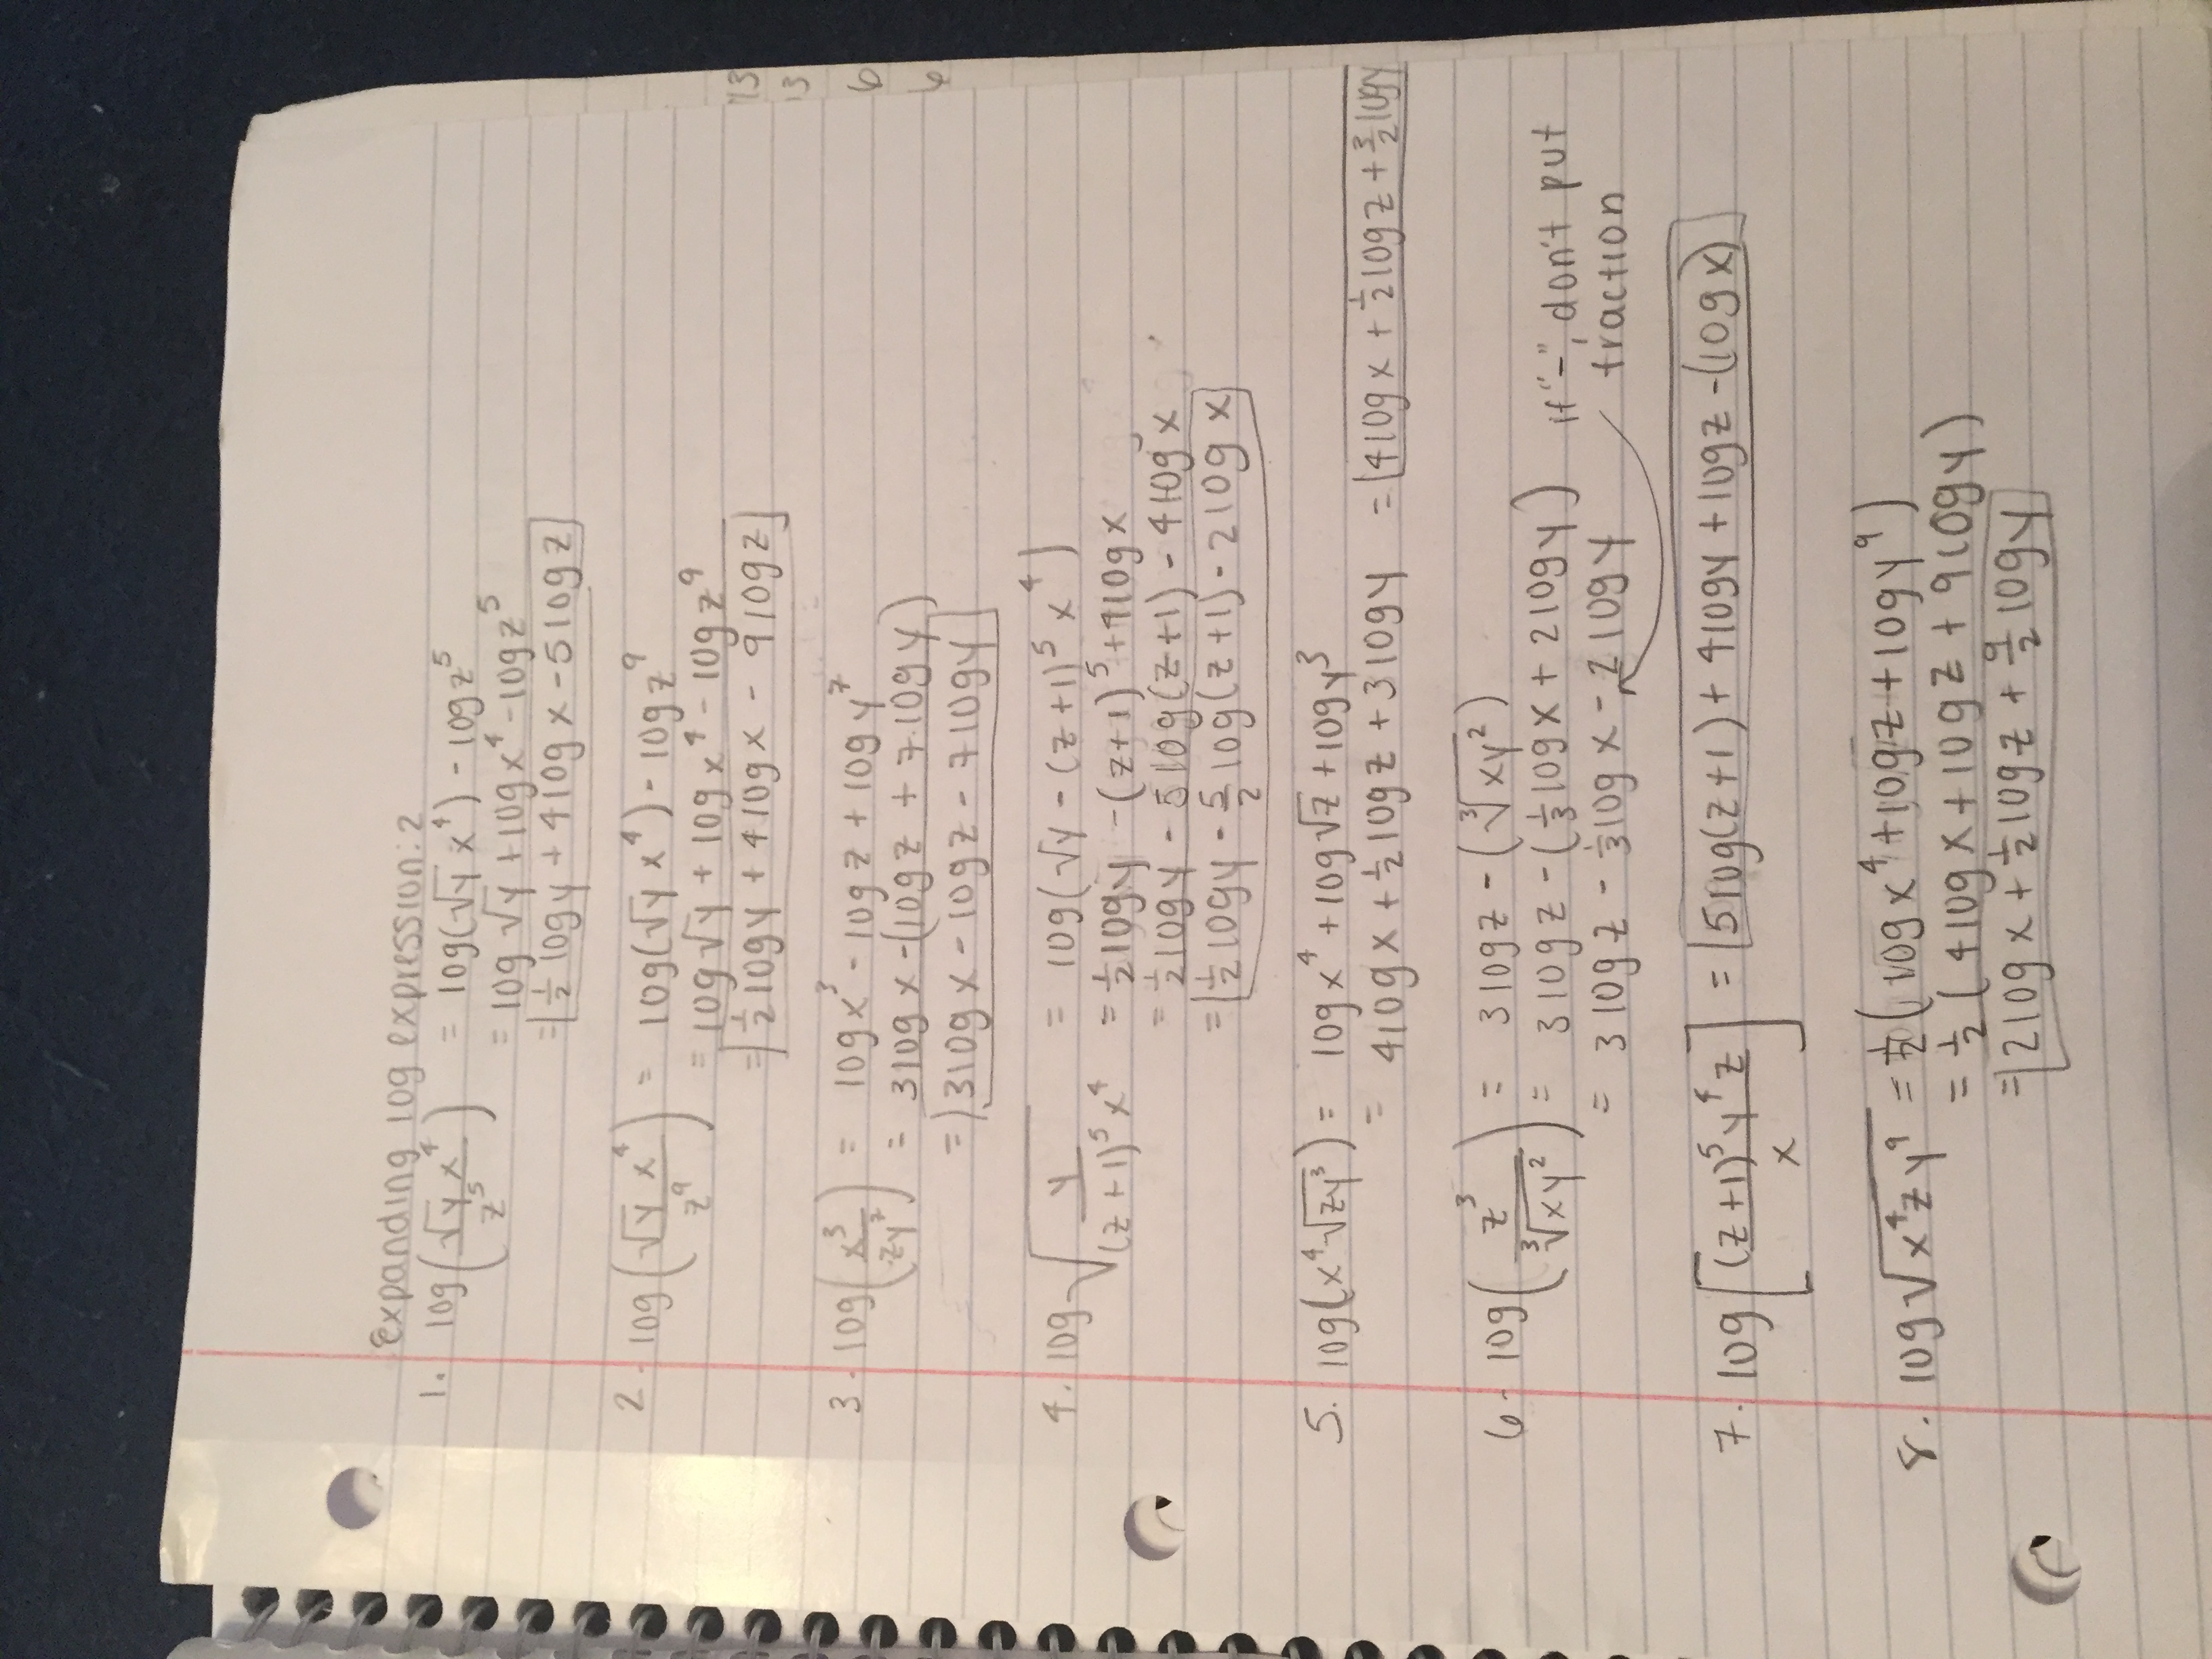 Expanding log expression: 2
1. log(√y x⁴ / z⁵) = log(√y x⁴) - log z⁵
= log √y + log x⁴ - log z⁵
= ½ log y + 4 log x - 5 log z
2. log(√y x⁴ / z⁹) = log(√y x⁴) - log z⁹
= log √y + log x⁴ - log z⁹
= ½ log y + 4 log x - 9 log z
3. log(x³ / zy⁷) = log x³ - log z + log y⁷
= 3 log x - (log z + 7 log y)
= 3 log x - log z - 7 log y
4. log √(y / (z+1)⁵ x⁴) = log(√y - (z+1)⁵ x⁴)
= ½ log y - (z+1)⁵ + 4 log x
= ½ log y - 5 log(z+1) - 4 log x
= ½ log y - 5/2 log(z+1) - 2 log x
5. log(x⁴ √zy³) = log x⁴ + log √z + log y³
= 4 log x + ½ log z + 3 log y = 4 log x + ½ log z + 3/2 log y
6. log(z³ / ∛xy²) = 3 log z - (∛xy²)
= 3 log z - (⅓ log x + 2 log y) if "-", don't put
= 3 log z - ⅓ log x - 2 log y fraction
7. log[(z+1)⁵ y⁴ z / x] = 5 log(z+1) + 4 log y + log z - (log x)
8. log √x⁴zy⁹ = ½ (log x⁴ + log z + log y⁹)
= ½ (4 log x + log z + 9 log y)
= 2 log x + ½ log z + 9/2 log y
13
13
6
6